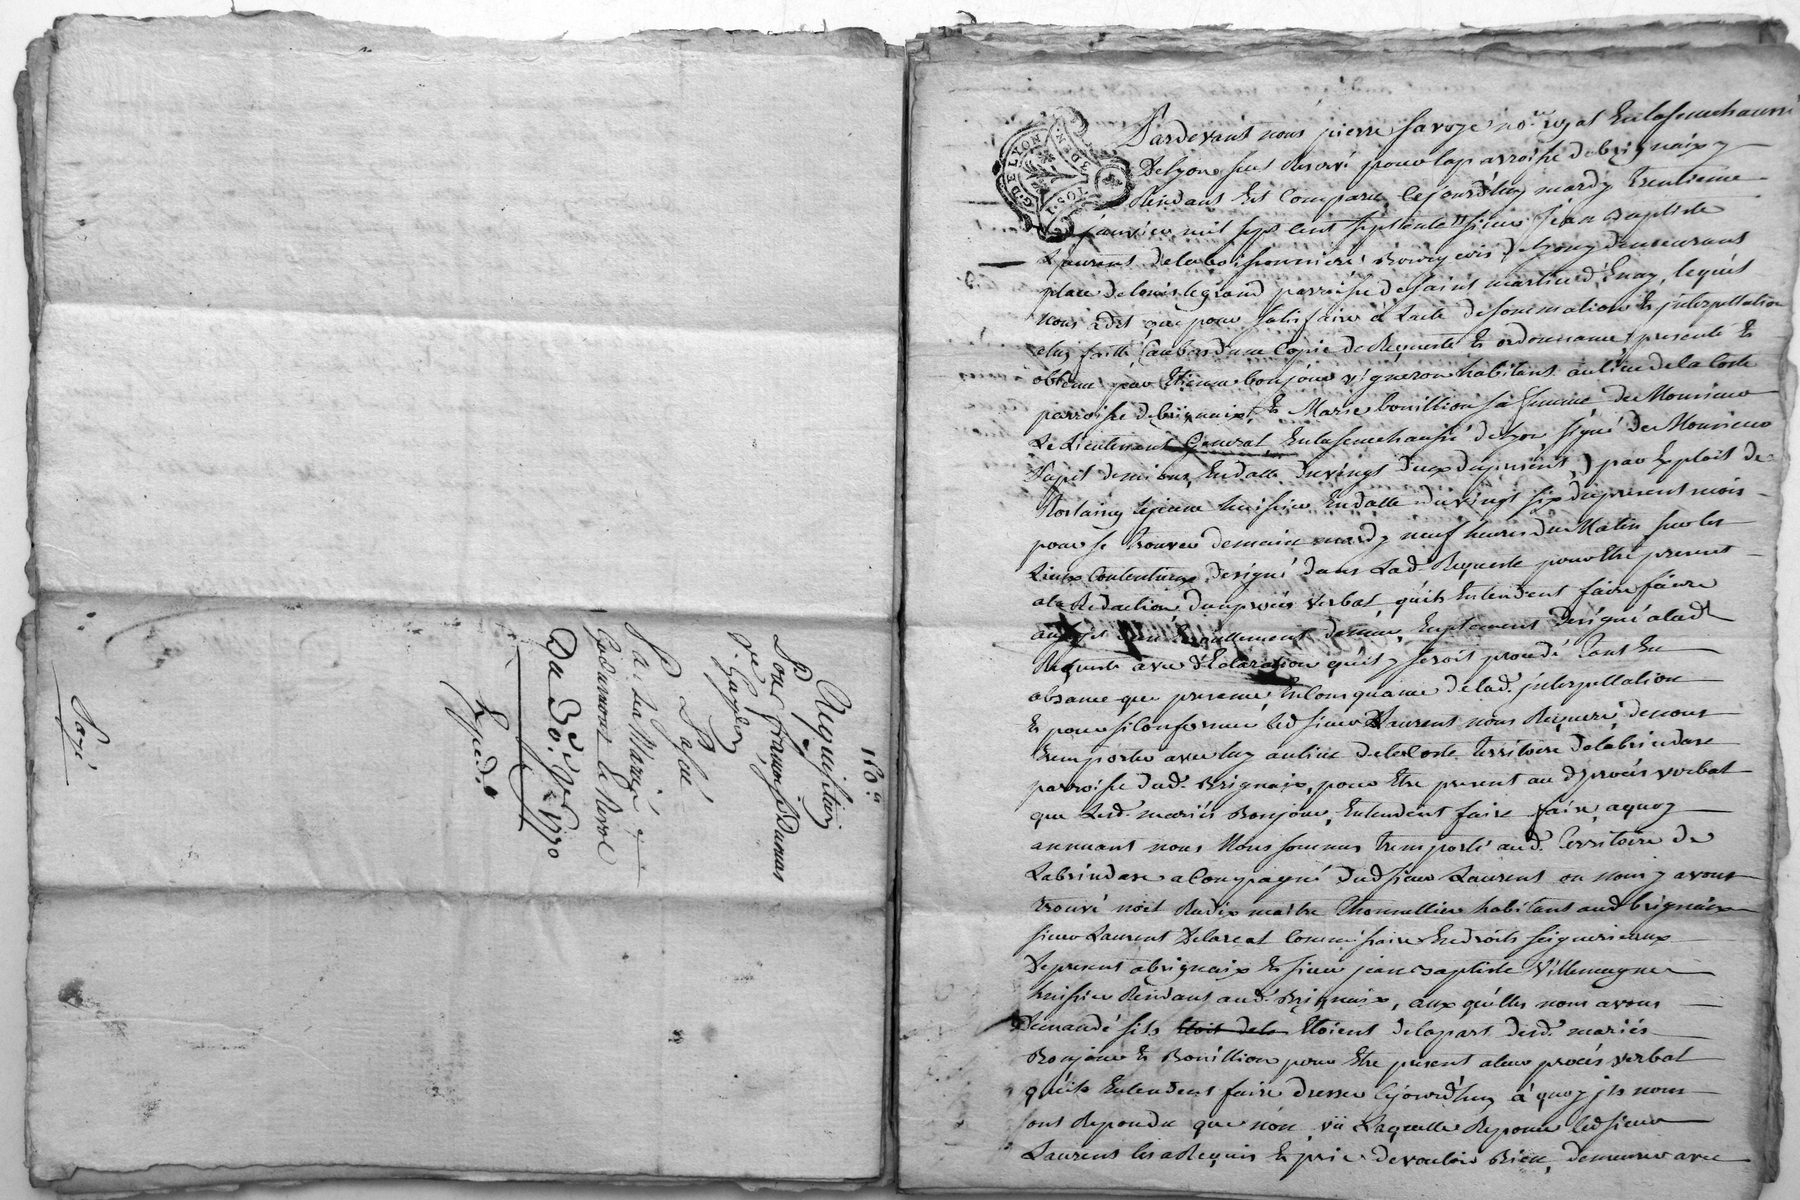 160.e
Requisition
Pour françois Dumas
P. Lafué
Sa. La Mariée
Du 30. Jer 1770
Exped.
Payé
G. DE LYON
Pardevant nous pierre favoge no.re royal En la senechaussé
De Lyon sous reservé pour la parroisse de brignaix y
Residant Est Comparu Cejourd'huy mardy Trentieme
janvier mil sept cent septente sieur jean Baptiste
Laurent de la boissonniere Bourgeois de Lyon y demeurant
place de Louis le grand parroisse de saint martin d'Enay, lequel
nous a dit que pour satisfaire à Lacte de sommation Et jnterpellation
a luy faitte au bas d'une Copie de Requeste Et ordonnance presenté Et
obtenue par Etienne bonjour vigneron habitant au lieu de la Coste
parroisse de brignaix, Et Marie bouillion sa femme de Monsieur
Le Lieutenant General En la senechaussé de Lyon, signé de Monsieur
En datte du vingt deux du present, par Exploit de
huissier En datte du vingt six du present mois
pour se Trouver demain mardy neuf heures du Matin sur les
Lieux Contentieux designé dans Lad. Requeste pour Etre present
a la Redaction d'un procés verbal qu'ils Entendent faire faire
Emplacement Designé a lad.
Requeste avec declaration qu'il y seroit procedé Tant En
absance que presence, En Consequance de lad. jnterpellation
Et pour si Conformer led sieur Laurent nous Requere de nous
Transporter avec luy au lieu de la Coste Territoire de la brindare
parroisse dud. Brignaix, pour Etre present au d procés verbal
que Lesd. mariés Bonjour, Entendent faire faire, a quoy
annuant nous Nous sommes Transporté aud. Territoire de
Labrindare acCompagné dud sieur Laurent ou nous y avons
trouvé noel Radix maitre Thonnellier habitant aud brignaix
sieur Laurent Delareat Commissaire En droits seigneuriaux
De present a brignaix Et sieur jean Baptiste Villemagne
huissier Residant aud. Brignaix, aux quelles nous avons
Demandé sils Etoit de la Etoient de la part desd. mariés
Bonjour Et Bouillion pour Etre present a leur procés verbal
qu'ils Entendent faire dresser Cejourd'huy à quoy jls nous
ont Repondu que non, vu Laquelle Reponce led sieur
Laurent les a Requis Et prie de vouloir Bien, demeurer avec